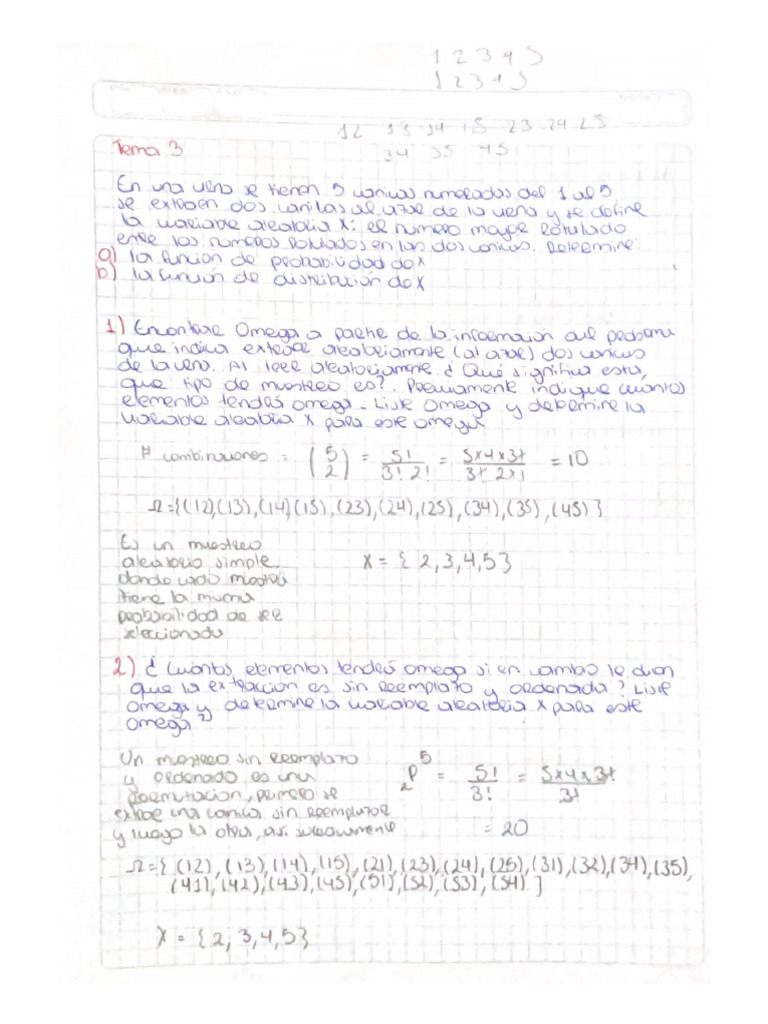 1 2 3 4 5
1 2 3 4 5
12 13 14 15 23 24 25
34 35 45
Tema 3
En una urna se tienen 5 canicas numeradas del 1 al 5
se extraen dos canicas al azar de la urna y se define
la variable aleatoria X: el numero mayor rotulado
entre los números rotulados en las dos canicas. Determine:
a) la función de probabilidad de X
b) la función de distribución de X
1) Encontrar Omega a partir de la información del problema
que indica extraer aleatoriamente (al azar) dos canicas
de la urna. Al leer aleatoriamente ¿Qué significa esta,
que tipo de muestreo es?. Previamente indique cuántos
elementos tendrá omega. Liste Omega y determine la
variable aleatoria X para este omega
# combinaciones = (5 2) = 5! / 3! 2! = 5x4x3! / 3! 2x1 = 10
Ω={(12),(13),(14)(15),(23),(24),(25),(34),(35),(45)}
Es un muestreo
aleatorio simple
donde cada muestra
tiene la misma
probabilidad de ser
seleccionada
X = { 2,3,4,5}
2) ¿Cuántos elementos tendrá omega si en cambio le dicen
que la extracción es sin reemplazo y ordenada? Liste
omega y determine la variable aleatoria X para este
omega?
Un muestreo sin reemplazo
y ordenado es una
permutacion, primero se
extrae una canica sin reemplazar
y luego la otra, asi sucesivamente
2P5 = 5! / 3! = 5x4x3! / 3!
= 20
Ω={ (12), (13), (14), (15), (21), (23), (24), (25), (31), (32), (34), (35),
(41), (42), (43), (45), (51), (52), (53), (54) }
X = {2, 3, 4, 5}